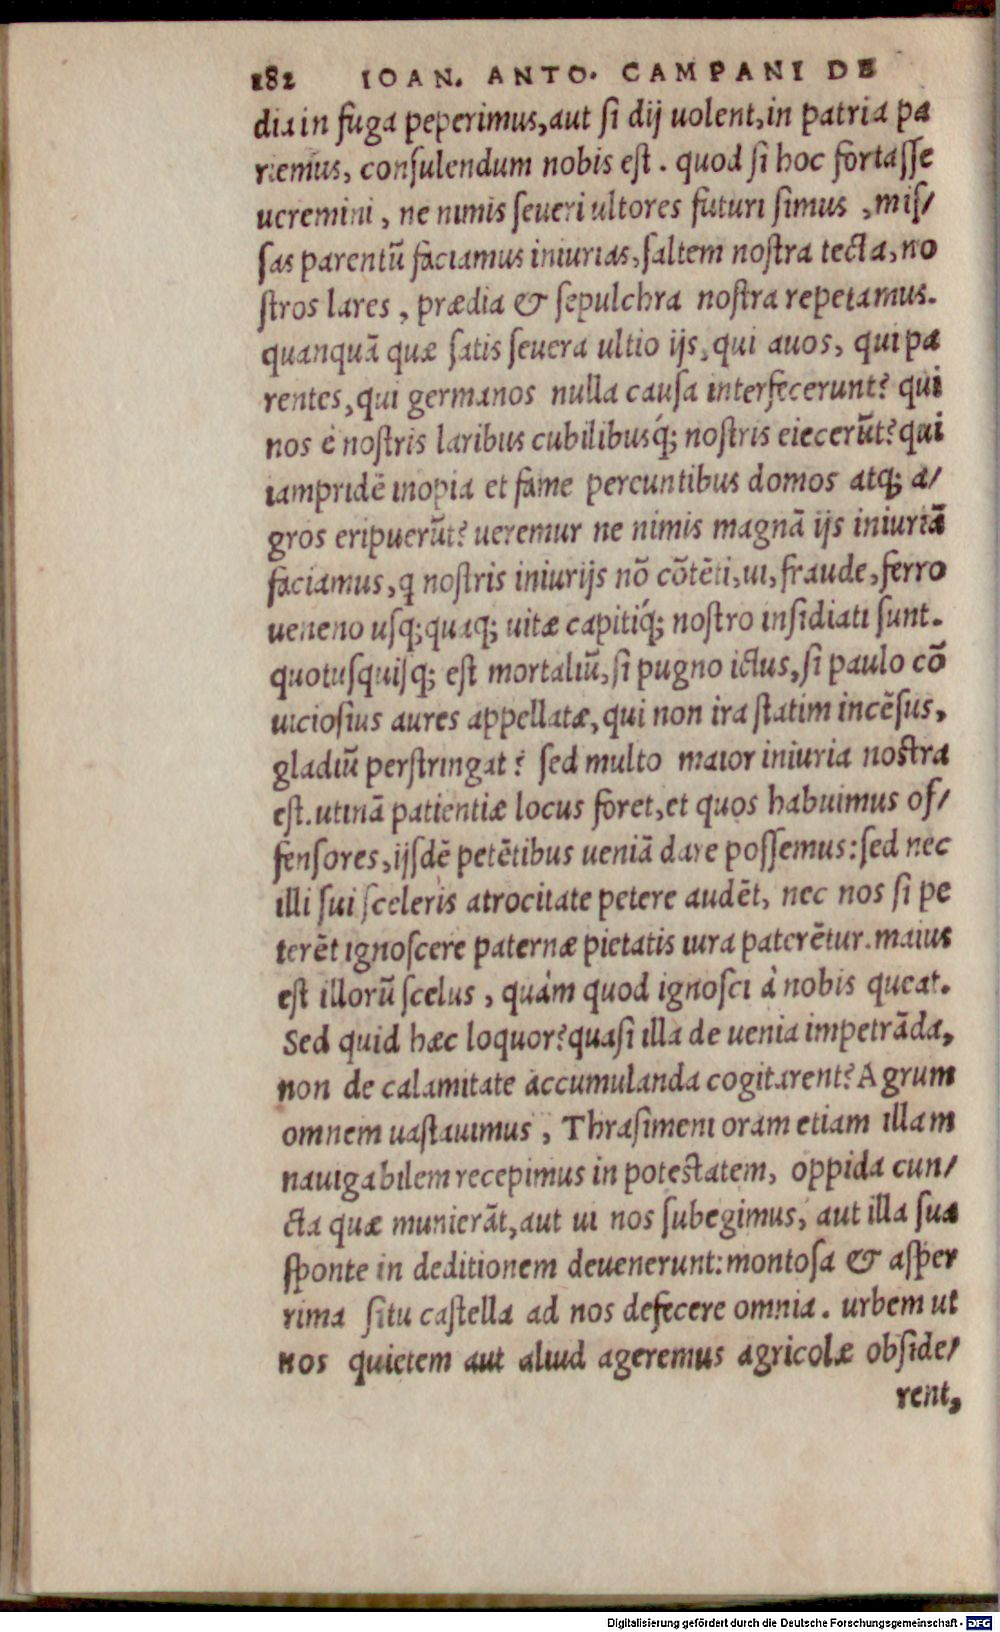 182 IOAN. ANTO. CAMPANI DE
dia in fuga peperimus, aut ſi dij uolent, in patria pa
riemus, conſulendum nobis eſt. quod ſi hoc fortaſſe
ueremini, ne nimis ſeueri ultores futuri ſimus, miſ/
ſas parentũ faciamus iniurias, ſaltem noſtra tecta, no
ſtros lares, prædia & ſepulchra noſtra repetamus.
quanquã quæ ſatis ſeuera ultio ijs, qui auos, qui pa
rentes, qui germanos nulla cauſa interfecerunt? qui
nos è noſtris laribus cubilibusq́; noſtris eiecerũt? qui
iampridẽ inopia et fame percuntibus domos atq; a/
gros eripuerũt? ueremur ne nimis magnã ijs iniuriã
faciamus, q noſtris iniurijs nõ cõtẽti, ui, fraude, ferro
ueneno uſq; quaq; uitæ capitiq́; noſtro inſidiati ſunt.
quotuſquiſq; eſt mortaliũ, ſi pugno ictus, ſi paulo cõ
uicioſius aures appellatæ, qui non ira ſtatim incẽſus,
gladiũ perſtringat? ſed multo maior iniuria noſtra
eſt. utinã patientiæ locus foret, et quos habuimus of/
fenſores, ijſdẽ petẽtibus ueniã dare poſſemus: ſed nec
illi ſui ſceleris atrocitate petere audẽt, nec nos ſi pe
terẽt ignoſcere paternæ pietatis iura paterẽtur. maius
eſt illorũ ſcelus, quàm quod ignoſci à nobis queat.
Sed quid hæc loquor? quaſi illa de uenia impetrãda,
non de calamitate accumulanda cogitarent? Agrum
omnem uaſtauimus, Thraſimeni oram etiam illam
nauigabilem recepimus in poteſtatem, oppida cun/
cta quæ munierãt, aut ui nos ſubegimus, aut illa ſua
ſponte in deditionem deuenerunt: montoſa & aſper
rima ſitu caſtella ad nos defecere omnia. urbem ut
nos quietem aut aliud ageremus agricolæ obſide/
rent,
Digitalisierung gefördert durch die Deutsche Forschungsgemeinschaft - DFG